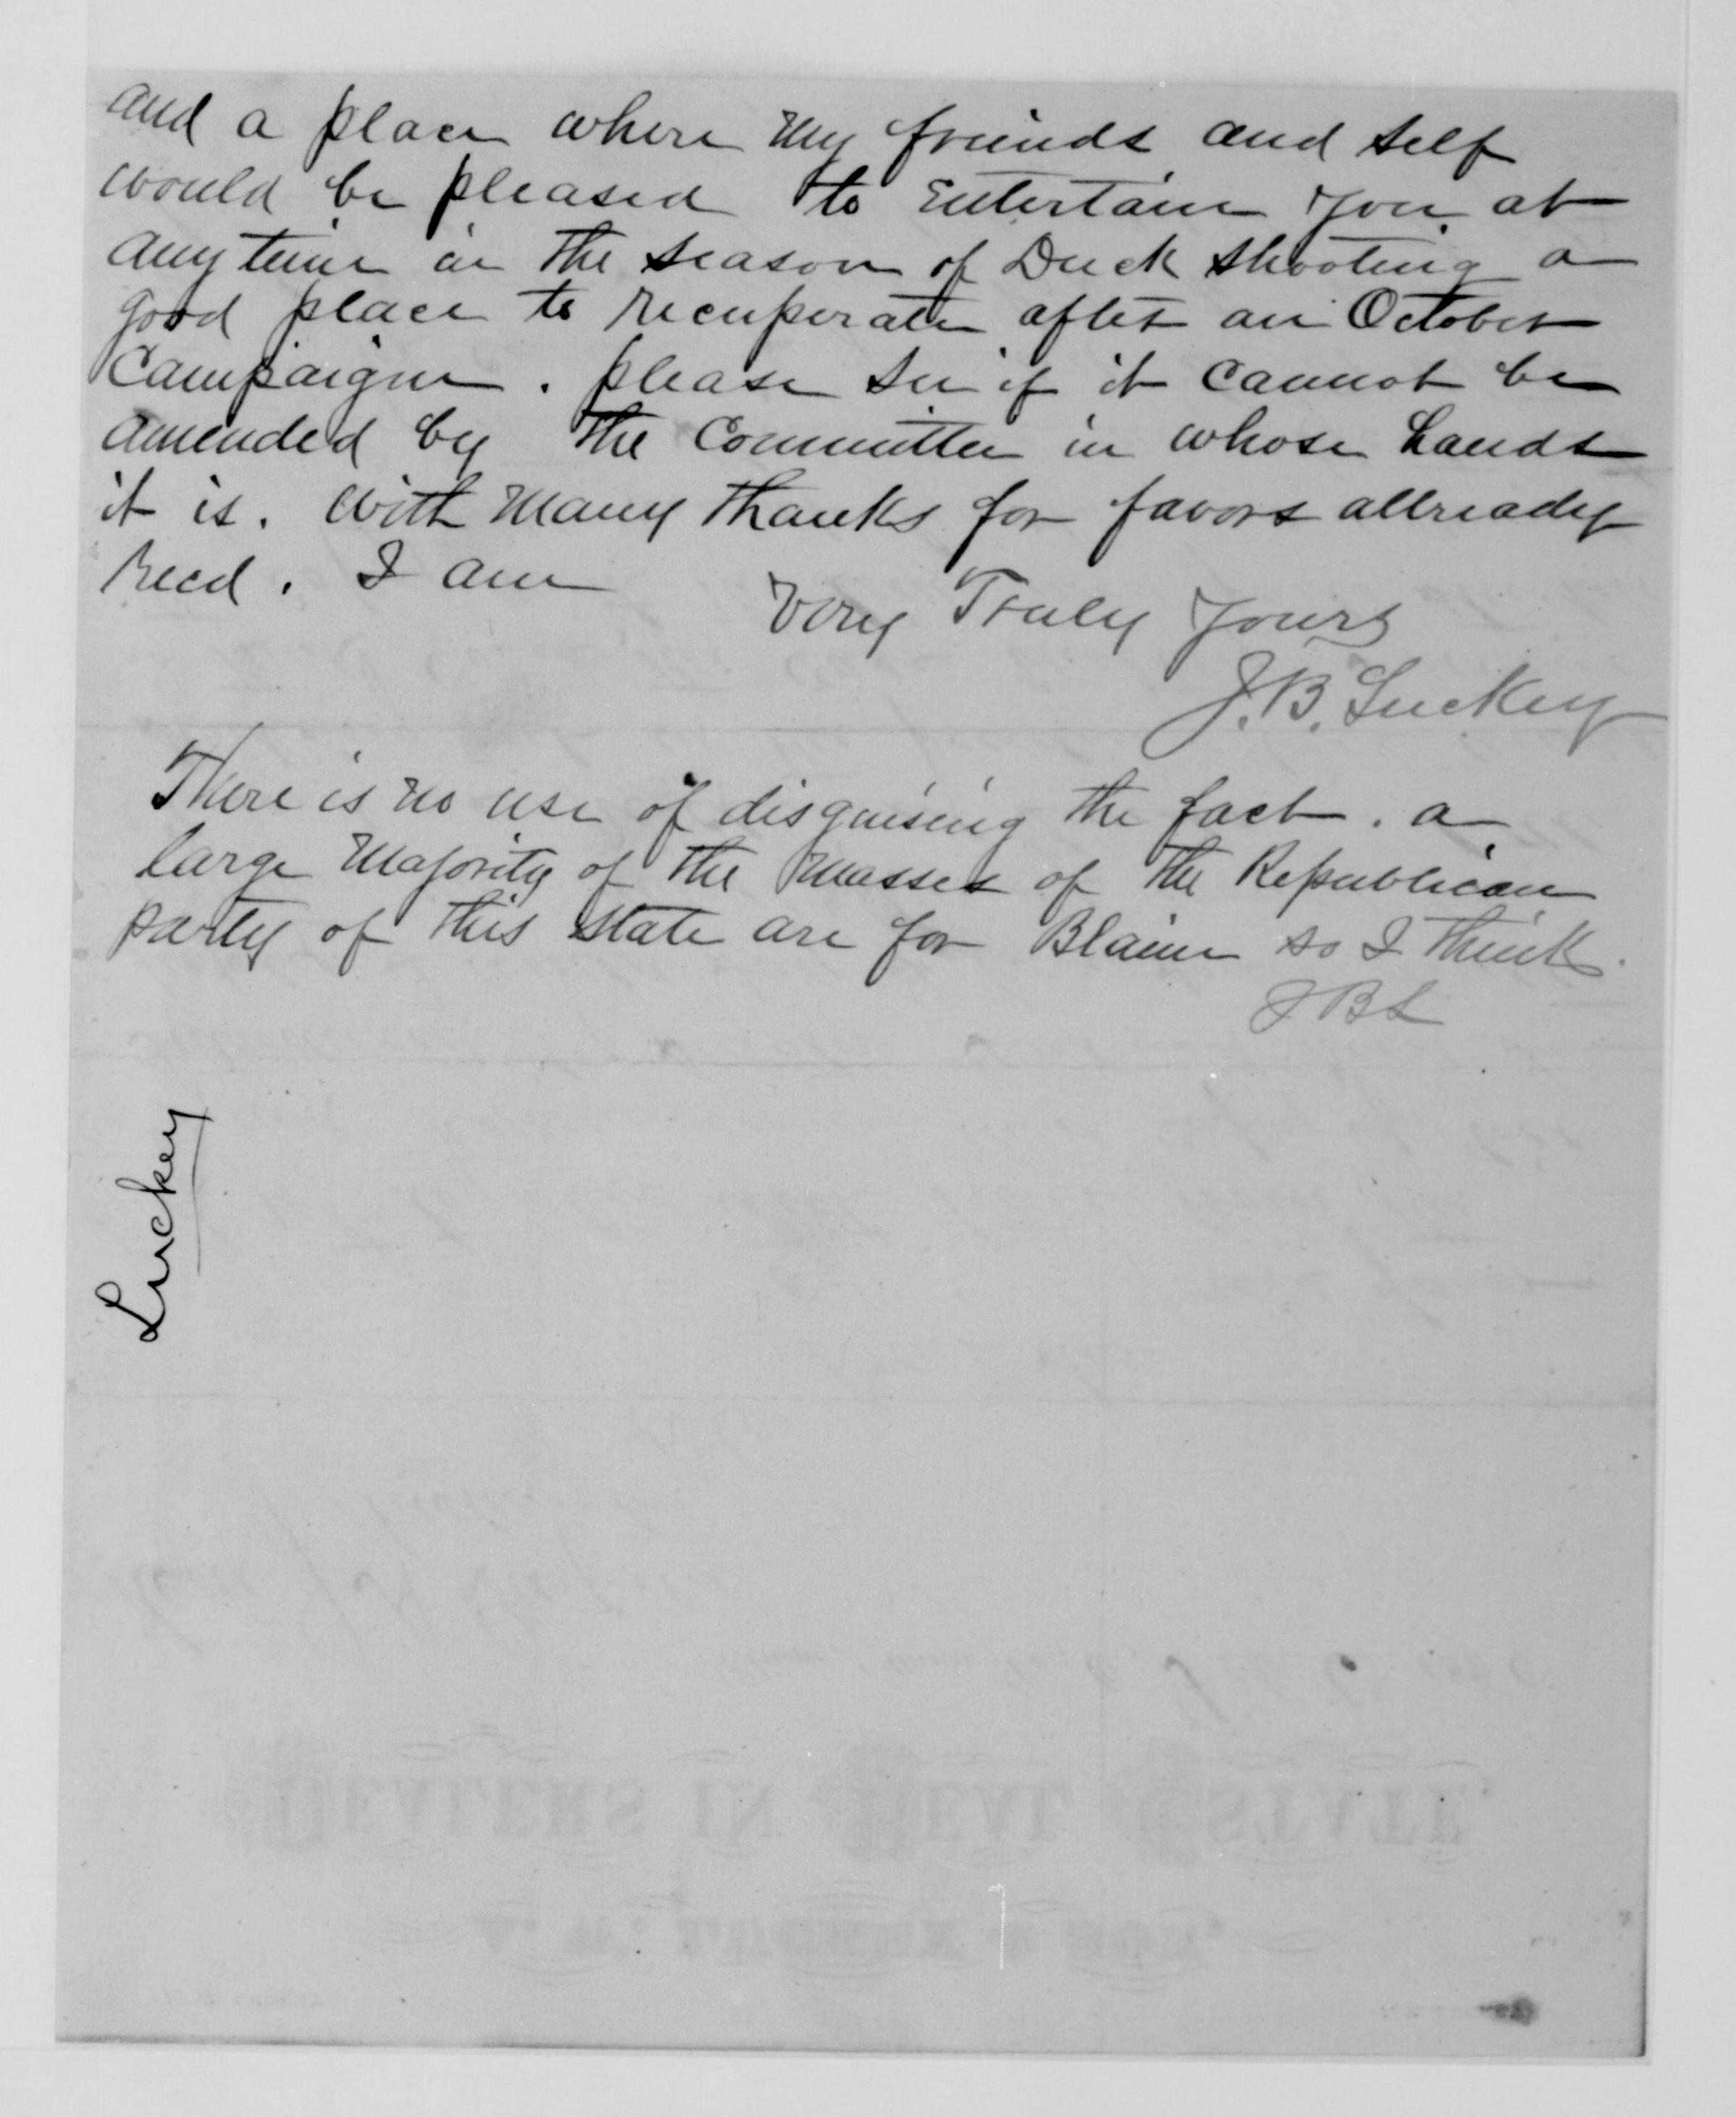 and a place where my friends and self
would be pleased to Entertain you at
any time in the season of Duck shooting a
good place to recuperate after an October
Campaign. please see if it cannot be
amended by the Committee in whose hands
it is. with many thanks for favors allready
Recd. I am
Very Truly Yours
J. B. Luckey
There is no use of disguising the fact. a
large Majority of the masses of the Republican
party of this state are for Blaine so I think.
JBL
Luckey
DEALERS IN REAL ESTATE